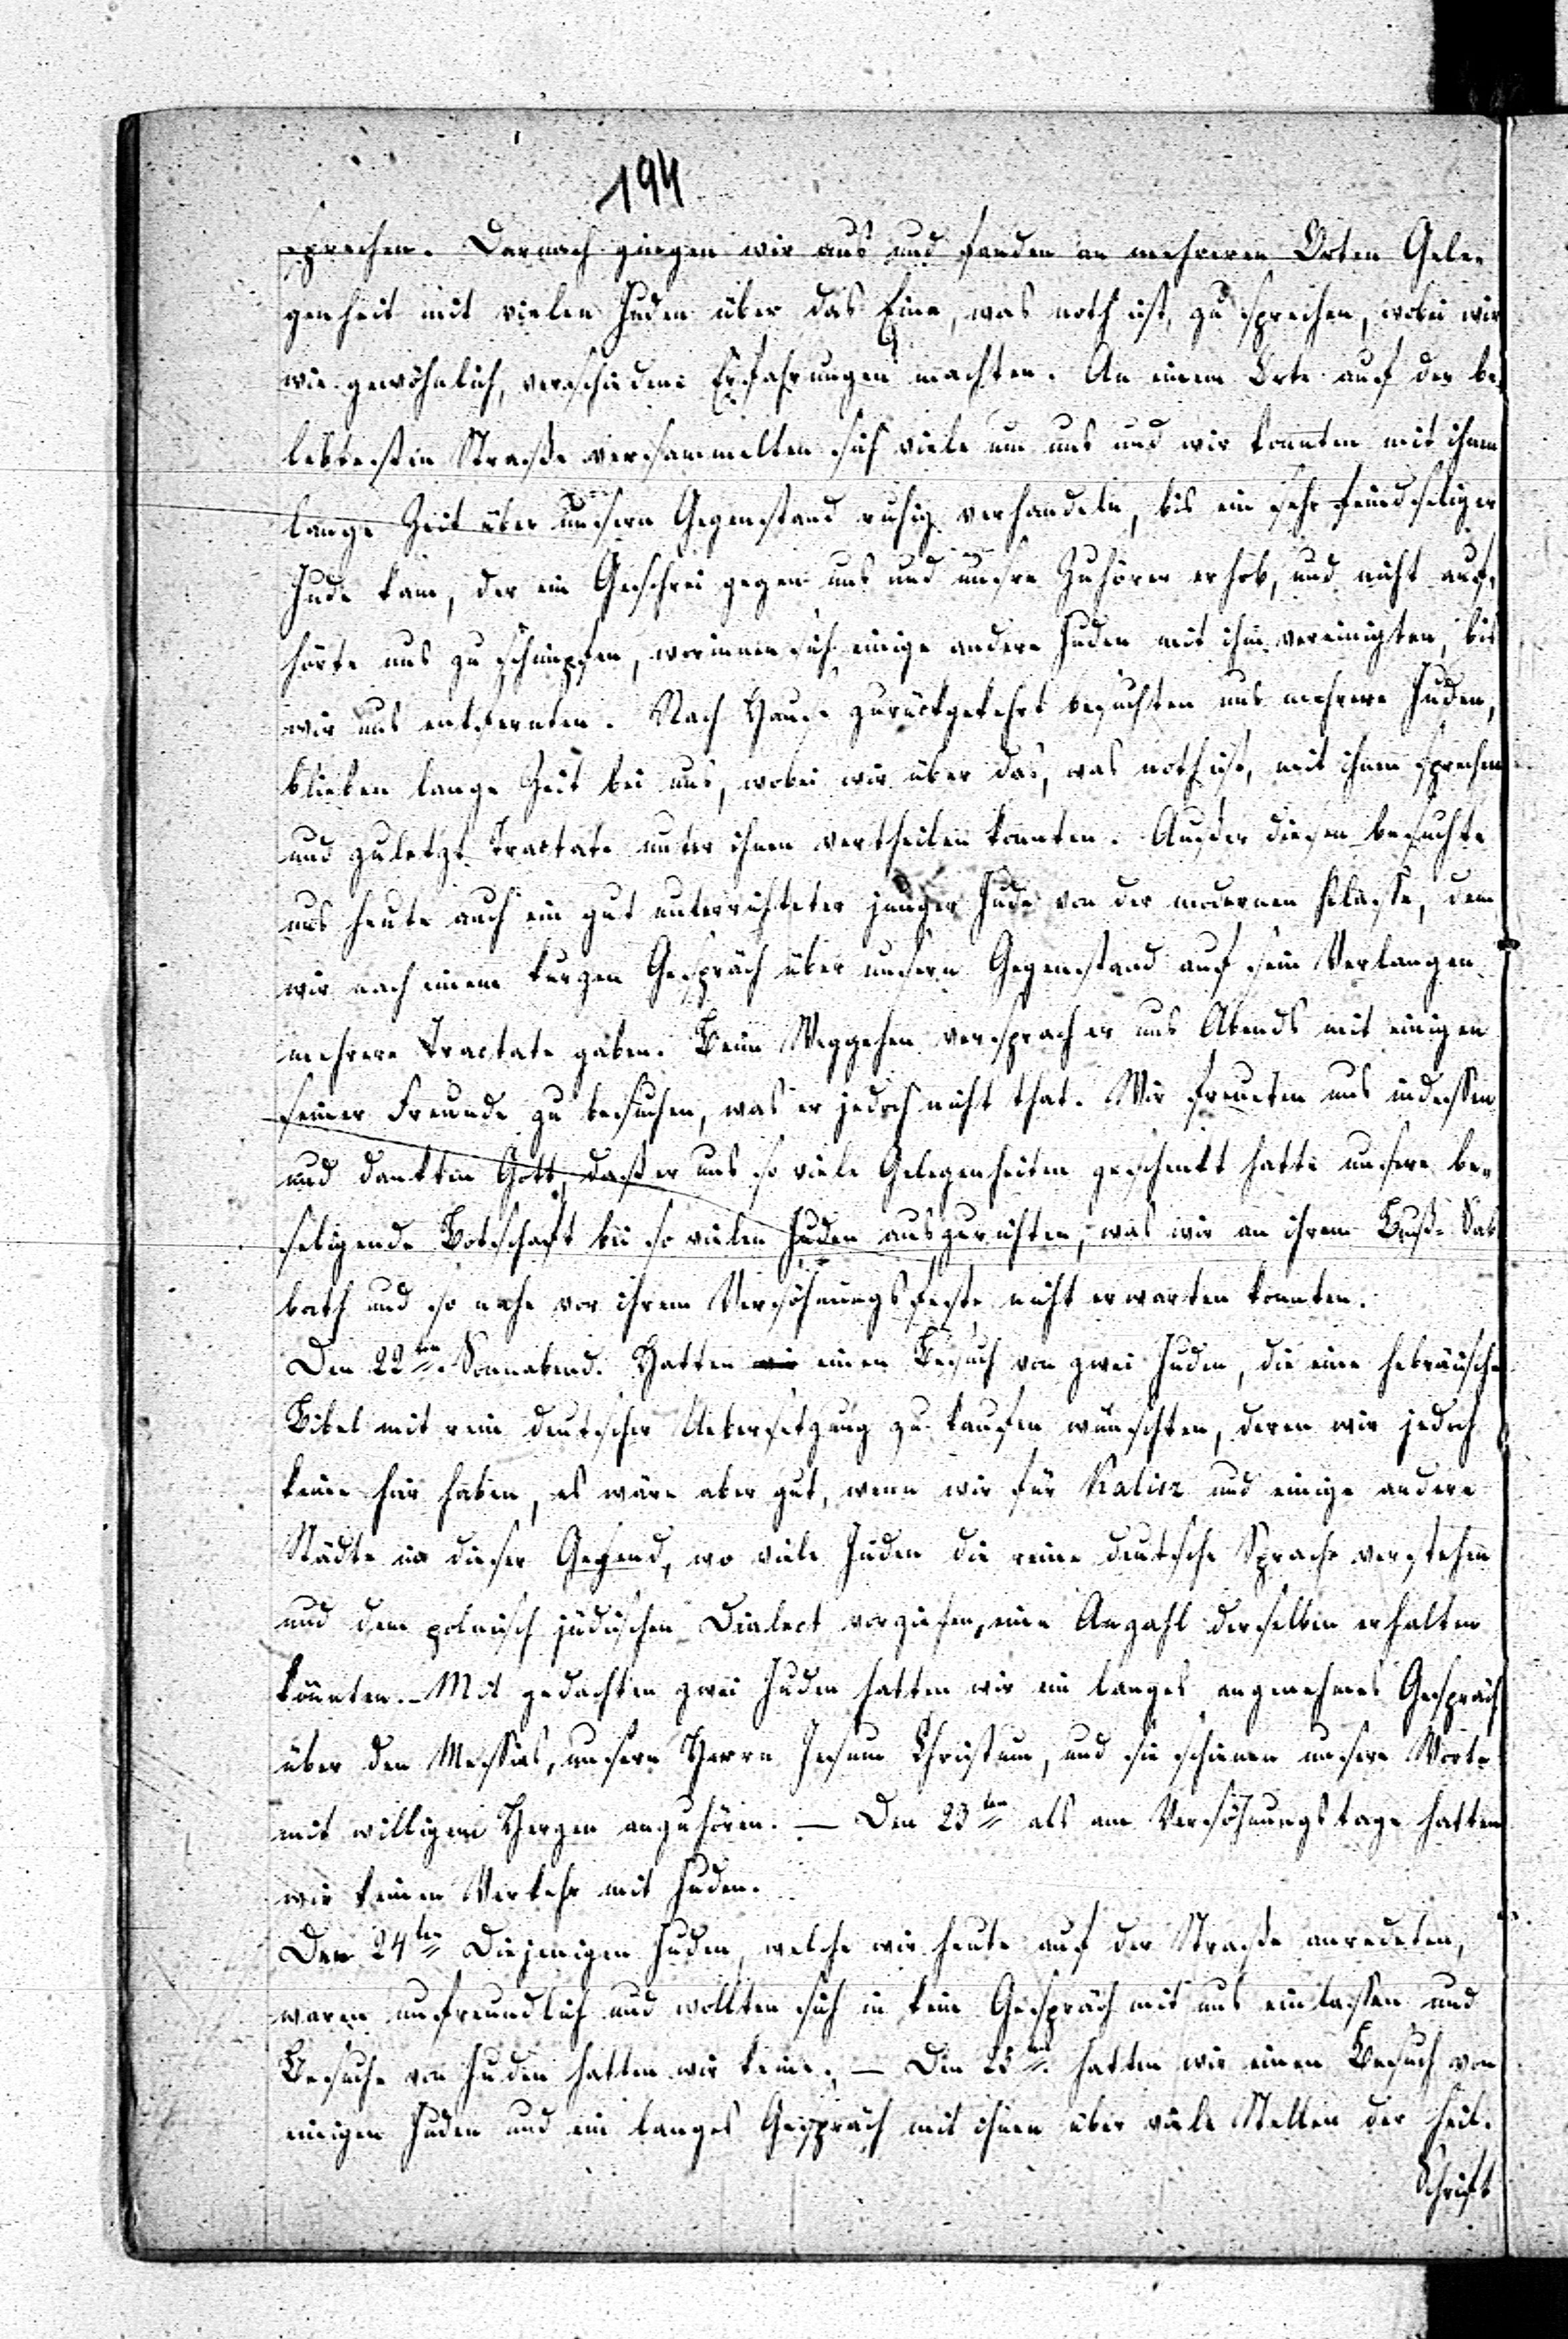 194
sprechen. Darnach giengen wir aus und fanden an mehreren Orten Gele-
genheit mit vielen Juden über das Eine, was noth ist, zu sprechen, wobei wir
wie gewöhnlich, verschiedene Erfahrungen machten. An einem Orte auf der be-
lebtesten Straße versammelten sich viele um uns und wir konnten mit ihnen
lange Zeit über unsern Gegenstand ruhig verhandeln, bis ein sehr feindseliger
Jude kam, der ein Geschrei gegen uns und unsre Zuhörer erhob, und nicht auf-
hörte uns zu schimpfen, worinnen sich einige andere Juden mit ihm vereinigten, bis
wir uns entfernten. Nach Hause zurückgekehrt besuchten uns mehrere Juden,
blieben lange Zeit bei uns, wobei wir über das, was noth ist, mit ihnen sprechen
und zuletzt Tractate unter ihnen vertheilen konnten. Außer diesen besuchte
uns heute auch ein gut unterrichteter junger Jude von der modernen Klasse, dem
wir nach einem kurzen Gespräch über unsern Gegenstand auf sein Verlangen
mehrere Tractate gaben. Beim Weggehen versprach er uns Abends mit einigen
seiner Freunde zu besuchen, was er jedoch nicht that. Wir freueten uns indessen
und dankten Gott, daß er uns so viele Gelegenheiten geschenkt hatte unsere be-
seligende Botschaft bei so vielen Juden auszurichten, was wir an ihrem Buß-Sab-
bath und so nahe vor ihrem Versöhnungsfeste nicht erwarten konnten.
Den 22ten Sonnabend. Hatten wir einen Besuch von zwei Juden, die eine hebräische
Bibel mit rein deutscher Uebersetzung zu kaufen wünschten, deren wir jedoch
keine hier haben, es wäre aber gut, wenn wir für Kalisz und einige andere
Städte in dieser Gegend, wo viele Juden die reine deutsche Sprache verstehen
und dem polnisch jüdischen Dialect vorziehen, eine Anzahl derselben erhalten
könnten. Mit gedachten zwei Juden hatten wir ein langes angenehmes Gespräch
über den Messias, unsern Herrn Jesum Christum, und sie schienen unsere Worte
mit willigem Herzen anzuhören. – Den 23ten als am Versöhnungstage hatten
wir keinen Verkehr mit Juden.
Den 24ten Diejenigen Juden, welche wir heute auf der Straße anredeten,
waren unfreundlich und wollten sich in kein Gespräch mit uns einlassen und
Besuche von Juden hatten wir keine. – Den 25ten hatten wir einen Besuch von
einigen Juden und ein langes Gespräch mit ihnen über viele Stellen der heil.
Schrift